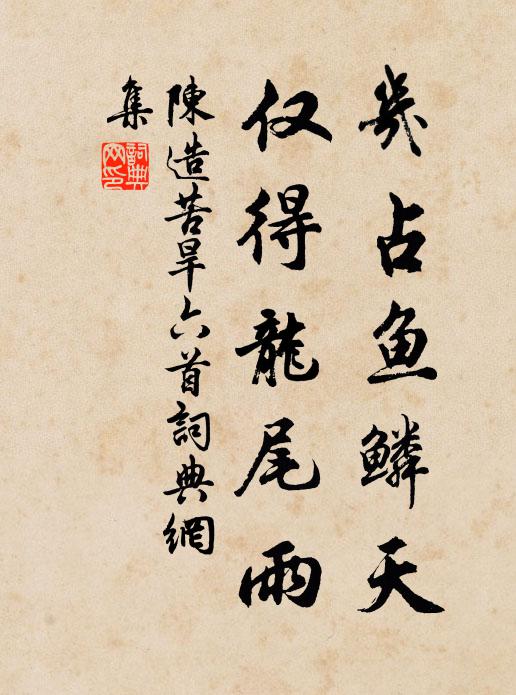 幾占鱼鳞天
仅得龍尾雨
陳造苦旱六首詞典網
集
詞典
网印